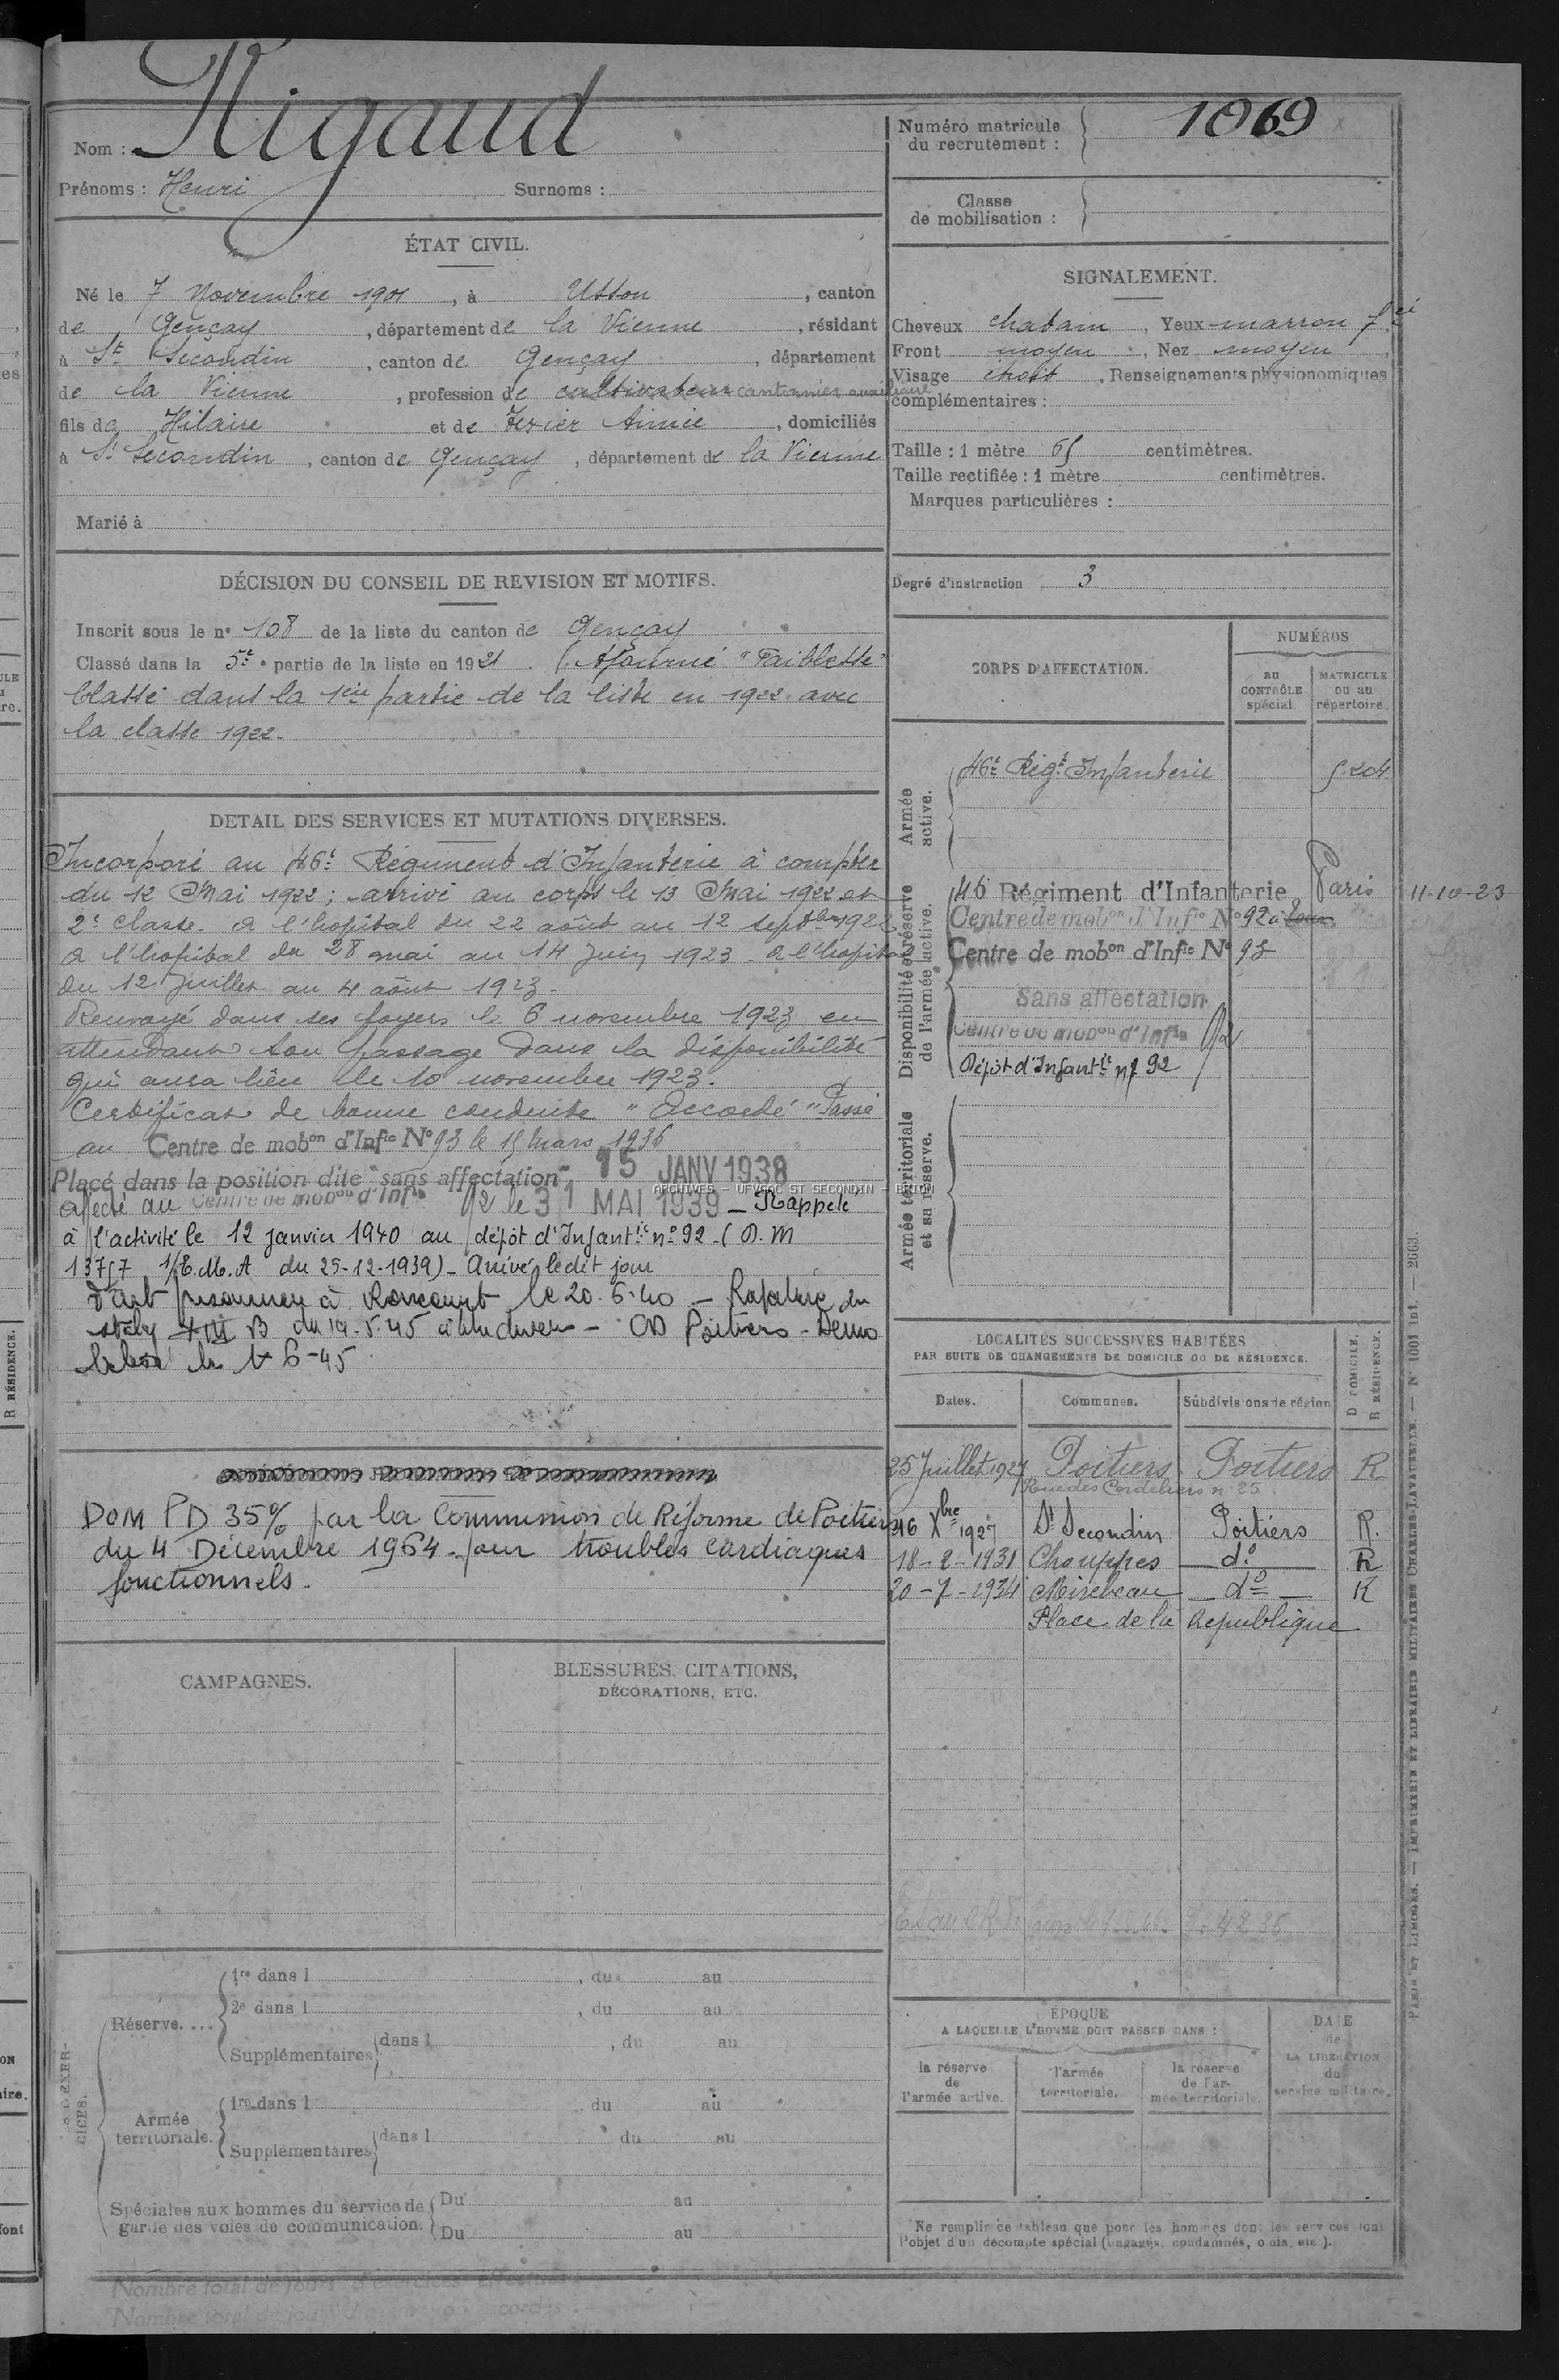 Rigaud
Nom :
Prénoms : Henri Surnoms :
ÉTAT CIVIL.
Né le 7 Novembre 1901, à Usson, canton
de Gençay, département de la Vienne, résidant
à St Secondin, canton de Gençay, département
de la Vienne, profession de cultivateur cantonnier auxiliaire
fils de Hilaire et de Texier Aimée, domiciliés
à St Secondin, canton de Gençay, département de la Vienne
Marié à
DÉCISION DU CONSEIL DE REVISION ET MOTIFS.
Inscrit sous le n° 108 de la liste du canton de Gençay
Classé dans la 5e partie de la liste en 1921. (Ajourné "Faiblesse"
Classé dans la 1ère partie de la liste en 1922 avec
la classe 1922.
DETAIL DES SERVICES ET MUTATIONS DIVERSES.
Incorporé au 46e Régiment d'Infanterie à compter
du 12 Mai 1922 ; arrivé au corps le 13 Mai 1922 et
2e classe. A l'hopital du 22 août au 12 septbre 1922
A l'hopital du 28 mai au 14 Juin 1923. A l'hopital
du 12 Juillet au 4 août 1923.
Renvoyé dans ses foyers le 6 novembre 1923 en
attendant son passage dans la disponibilité
qui aura lieu le 10 novembre 1923.
Certificat de bonne conduite "Accordé" Passé
au Centre de mobon d'Infie N° 93 le 15 Mars 1936
Placé dans la position dite "sans affectation" 15 JANV 1938
ARCHIVES - UFVGAC ST SECONDIN - BRION
Affecté au Centre de mobon d'Infie 92 le 31 MAI 1939 — Rappelé
à l'activité le 12 janvier 1940 au dépôt d'Infantie n° 92 - (D.M
13757 1/E.M.A du 25-12-1939) - Arrivé ledit jour
Fait prisonnier à Roncourt le 20.6.40 — Rapatrié du
stalag B du 19.5.45 — CD Poitiers - Démo
bilisé le 1-6-45
DOM PD 35% par la Commission de Réforme de Poitiers
du 4 Décembre 1964 - pour troubles cardiaques
fonctionnels.
CAMPAGNES.
BLESSURES. CITATIONS,
DÉCORATIONS, ETC.
SES D'EXERCICES.
Réserve....
1re dans l , du au
2e dans l , du au
Supplémentaires dans l , du au
Armée
territoriale.
1re dans l du au
Supplémentaires dans l du au
Spéciales aux hommes du service de
garde des voies de communication.
Du au
Du au
Nombre total de jours d'exercices effectués
Numéro matricule
du recrutement :
1069
Classe
de mobilisation :
SIGNALEMENT.
Cheveux chatain, Yeux marron fcé
Front moyen, Nez moyen
Visage étroit, Renseignements physionomiques
complémentaires :
Taille : 1 mètre 65 centimètres.
Taille rectifiée : 1 mètre centimètres.
Marques particulières :
Degré d'instruction 3
CORPS D'AFFECTATION.
NUMÉROS
au
CONTRÔLE
spécial.
MATRICULE
ou au
répertoire.
Armée
active.
46e Régt Infanterie 5204
Disponibilité et réserve
de l'armée active.
46 Régiment d'Infanterie Paris 11-10-23
Centre de mobon d'Infie N° 92 à
Centre de mobon d'Infie N° 93
Sans affectation
Centre de mobon d'Infie 92
Dépôt d'Infantie n° 92
Armée territoriale
et sa réserve.
LOCALITÉS SUCCESSIVES HABITÉES
PAR SUITE DE CHANGEMENTS DE DOMICILE OU DE RÉSIDENCE.
D DOMICILE.
R RÉSIDENCE.
Dates. Communes. Subdivisions de région
25 Juillet 1927 Poitiers Poitiers R
Rue des Cordeliers n° 25
16 Xbre 1927 St Secondin Poitiers R.
18-2-1931 Chouppes do R
20-7-1934 Mirebeau do R
Place de la République
ÉPOQUE
A LAQUELLE L'HOMME DOIT PASSER DANS :
la réserve
de
l'armée active.
l'armée
territoriale.
la réserve
de l'ar-
mée territoriale.
DATE
de
LA LIBÉRATION
du
service militaire.
Ne remplir ce tableau que pour les hommes dont les services font
l'objet d'un décompte spécial (engagés, condamnés, omis, etc.).
PARIS ET LIMOGES. — IMPRIMERIE ET LIBRAIRIE MILITAIRES CHARLES-LAVAUZELLE. — N° 1001 bis. — 2663.
R RÉSIDENCE.